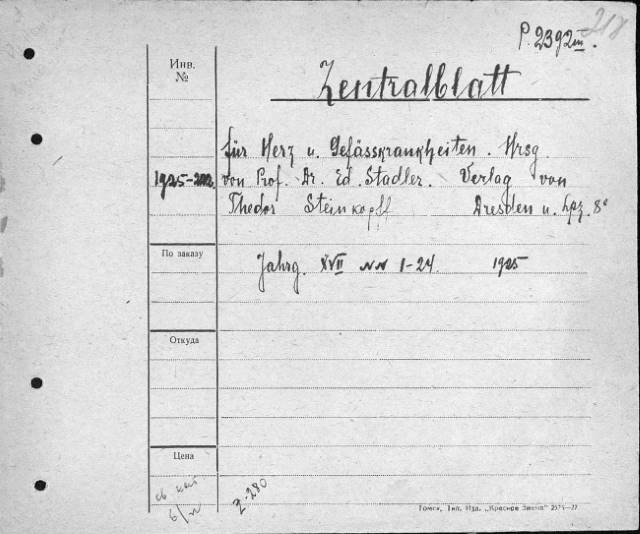 P. 2392 III. 218
Инв.
№
Zentralblatt
für Herz u. Gefässkrankheiten. Hrsg.
1925-202. von Prof. Dr. Ed. Stadler. Verlag von
Thedor Steinkopff Dresden u. Lpz. 8°
По заказу
Jahrg. XVII NN 1-24. 1925
Откуда
Цена
2-280
Томск, Тип. Изд. „Красное Знамя"